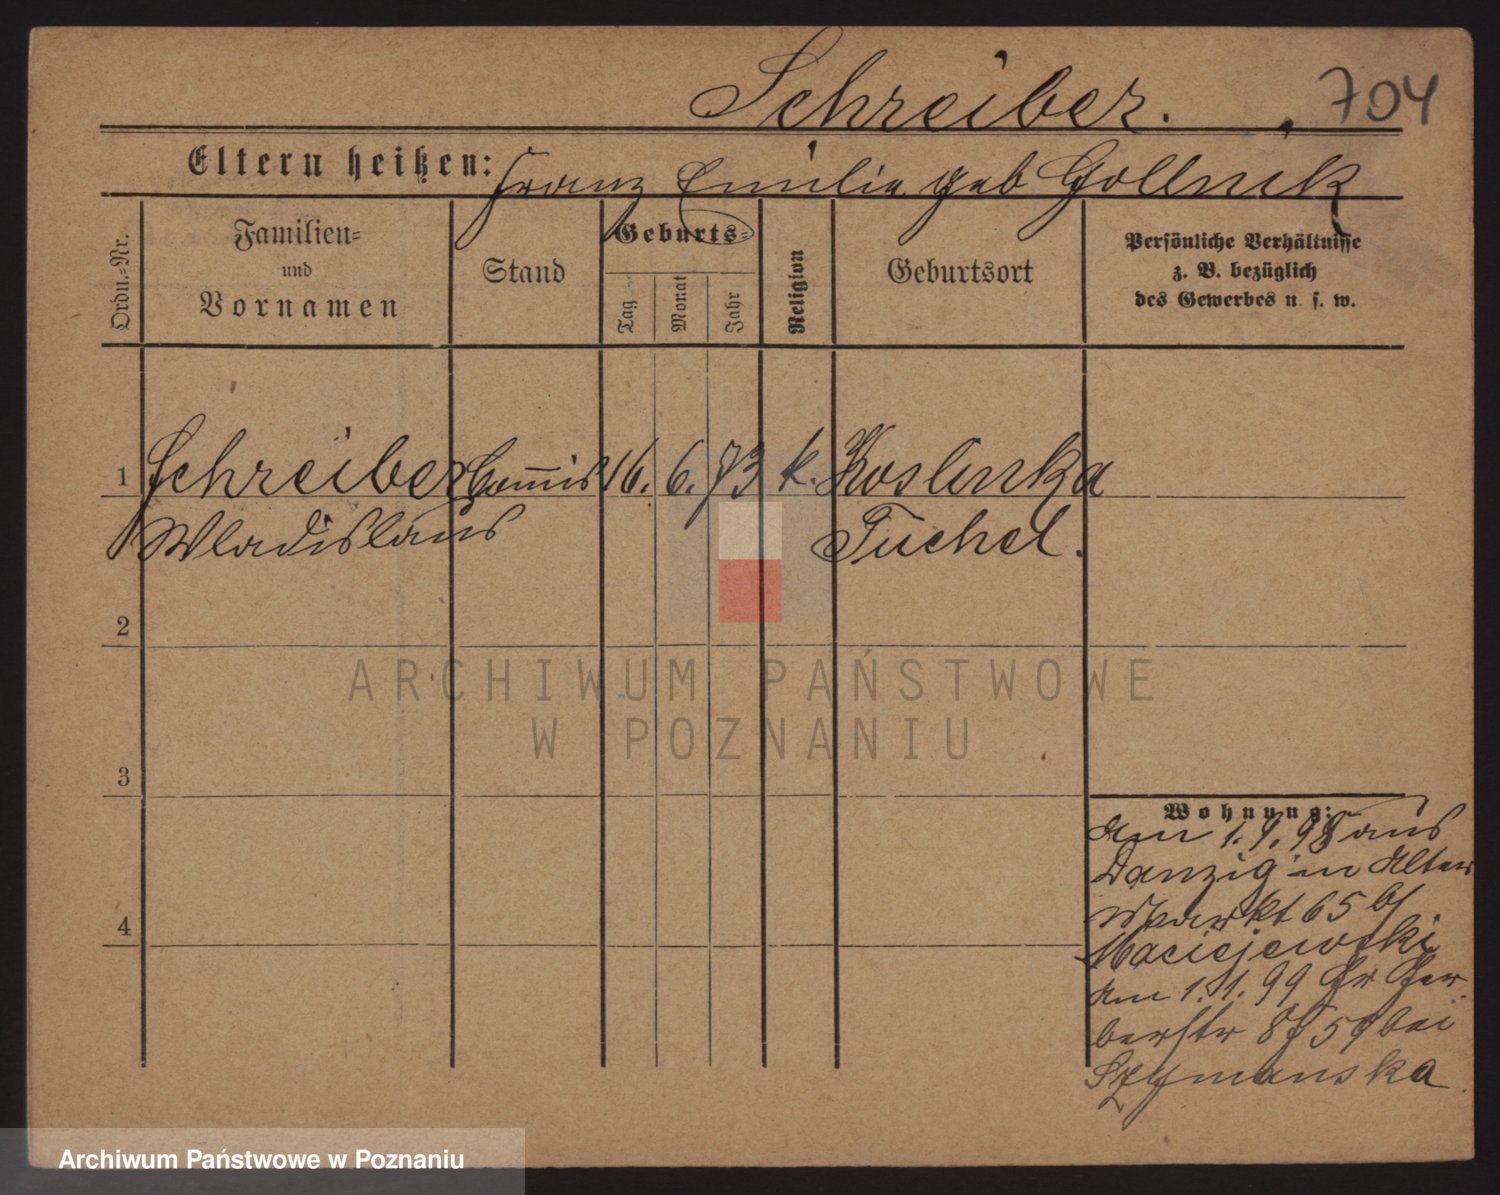 Schreiber. 704
Eltern heißen: Franz Emilie geb Gollnick
Ordn.-Nr.
Familien-
und
Vornamen
Stand
Geburts-
Tag
Monat
Jahr
Religion
Geburtsort
Persönliche Verhältnisse
z. B. bezüglich
des Gewerbes u. s. w.
1 Schreiber Commis 16. 6. 73 k. Koslinka
Wladislaus Tuchel.
2
3
4
Wohnung:
Am 1. 9. 98 aus
Danzig in Alter
Markt 65 b/
Maciejewski
Am 1. 1. 99 Gr Ger
berstr bei
Szymanska
ARCHIWUM PAŃSTWOWE
W POZNANIU
Archiwum Państwowe w Poznaniu